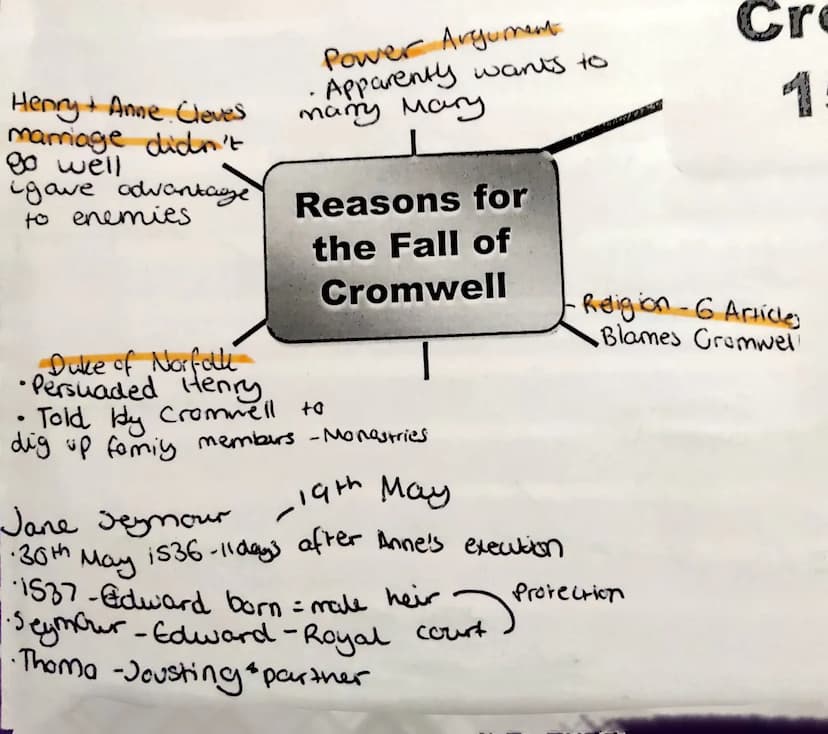 Cr
1
Power Argument
· Apparently wants to
marry Mary
Henry + Anne Cleves
marriage didn't
go well
↳gave advantage
to enemies
Reasons for
the Fall of
Cromwell
- Religion - 6 Articles
Blames Cromwell
Duke of Norfolk
· Persuaded Henry
· Told by Cromwell to
dig up famiy members - Monastries
Jane Seymour - 19th May
· 30th May 1536 - 11days after Anne's execution
· 1537 - Edward born = male heir Protection
· Seymour - Edward - Royal court
· Thoma - Jousting partner